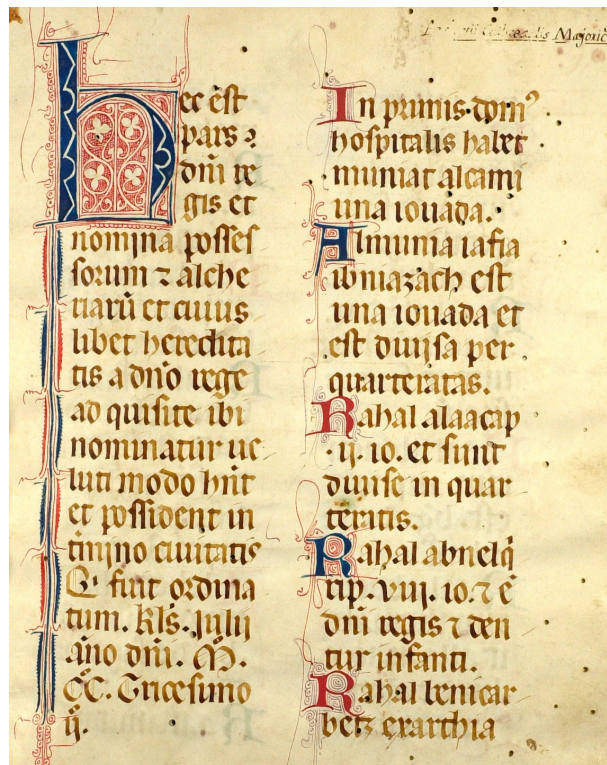 Majoric̄
hec ēst
pars ⁊
dn̄i re
gis et
nomina posses
sorum ⁊ alche
riarū et cuius
libet heredita
tis a dn̄o rege
ad quisite ibi
nominatur ue
luti modo hn̄t
et possident in
tm̄ino ciuitatis
Q̄ fuit ordina
tum. kl̄s. Julij
ān̄o dn̄i. M̄.
CC. Tricesimo
ij.
In primis dom⁹
hospitalis habet
muniat alcami
una iouada.
Almunia iafia
ibniazach est
una iouada et
est diuisa per
quarteratas.
Rahal alaacap
·ij. io. et sunt
diuise in quar
teratis.
Rahal abnelq̄
tip. viij. io. ⁊ ē
dn̄i regis ⁊ den
tur infanti.
Rahal benicar
betz exarthia